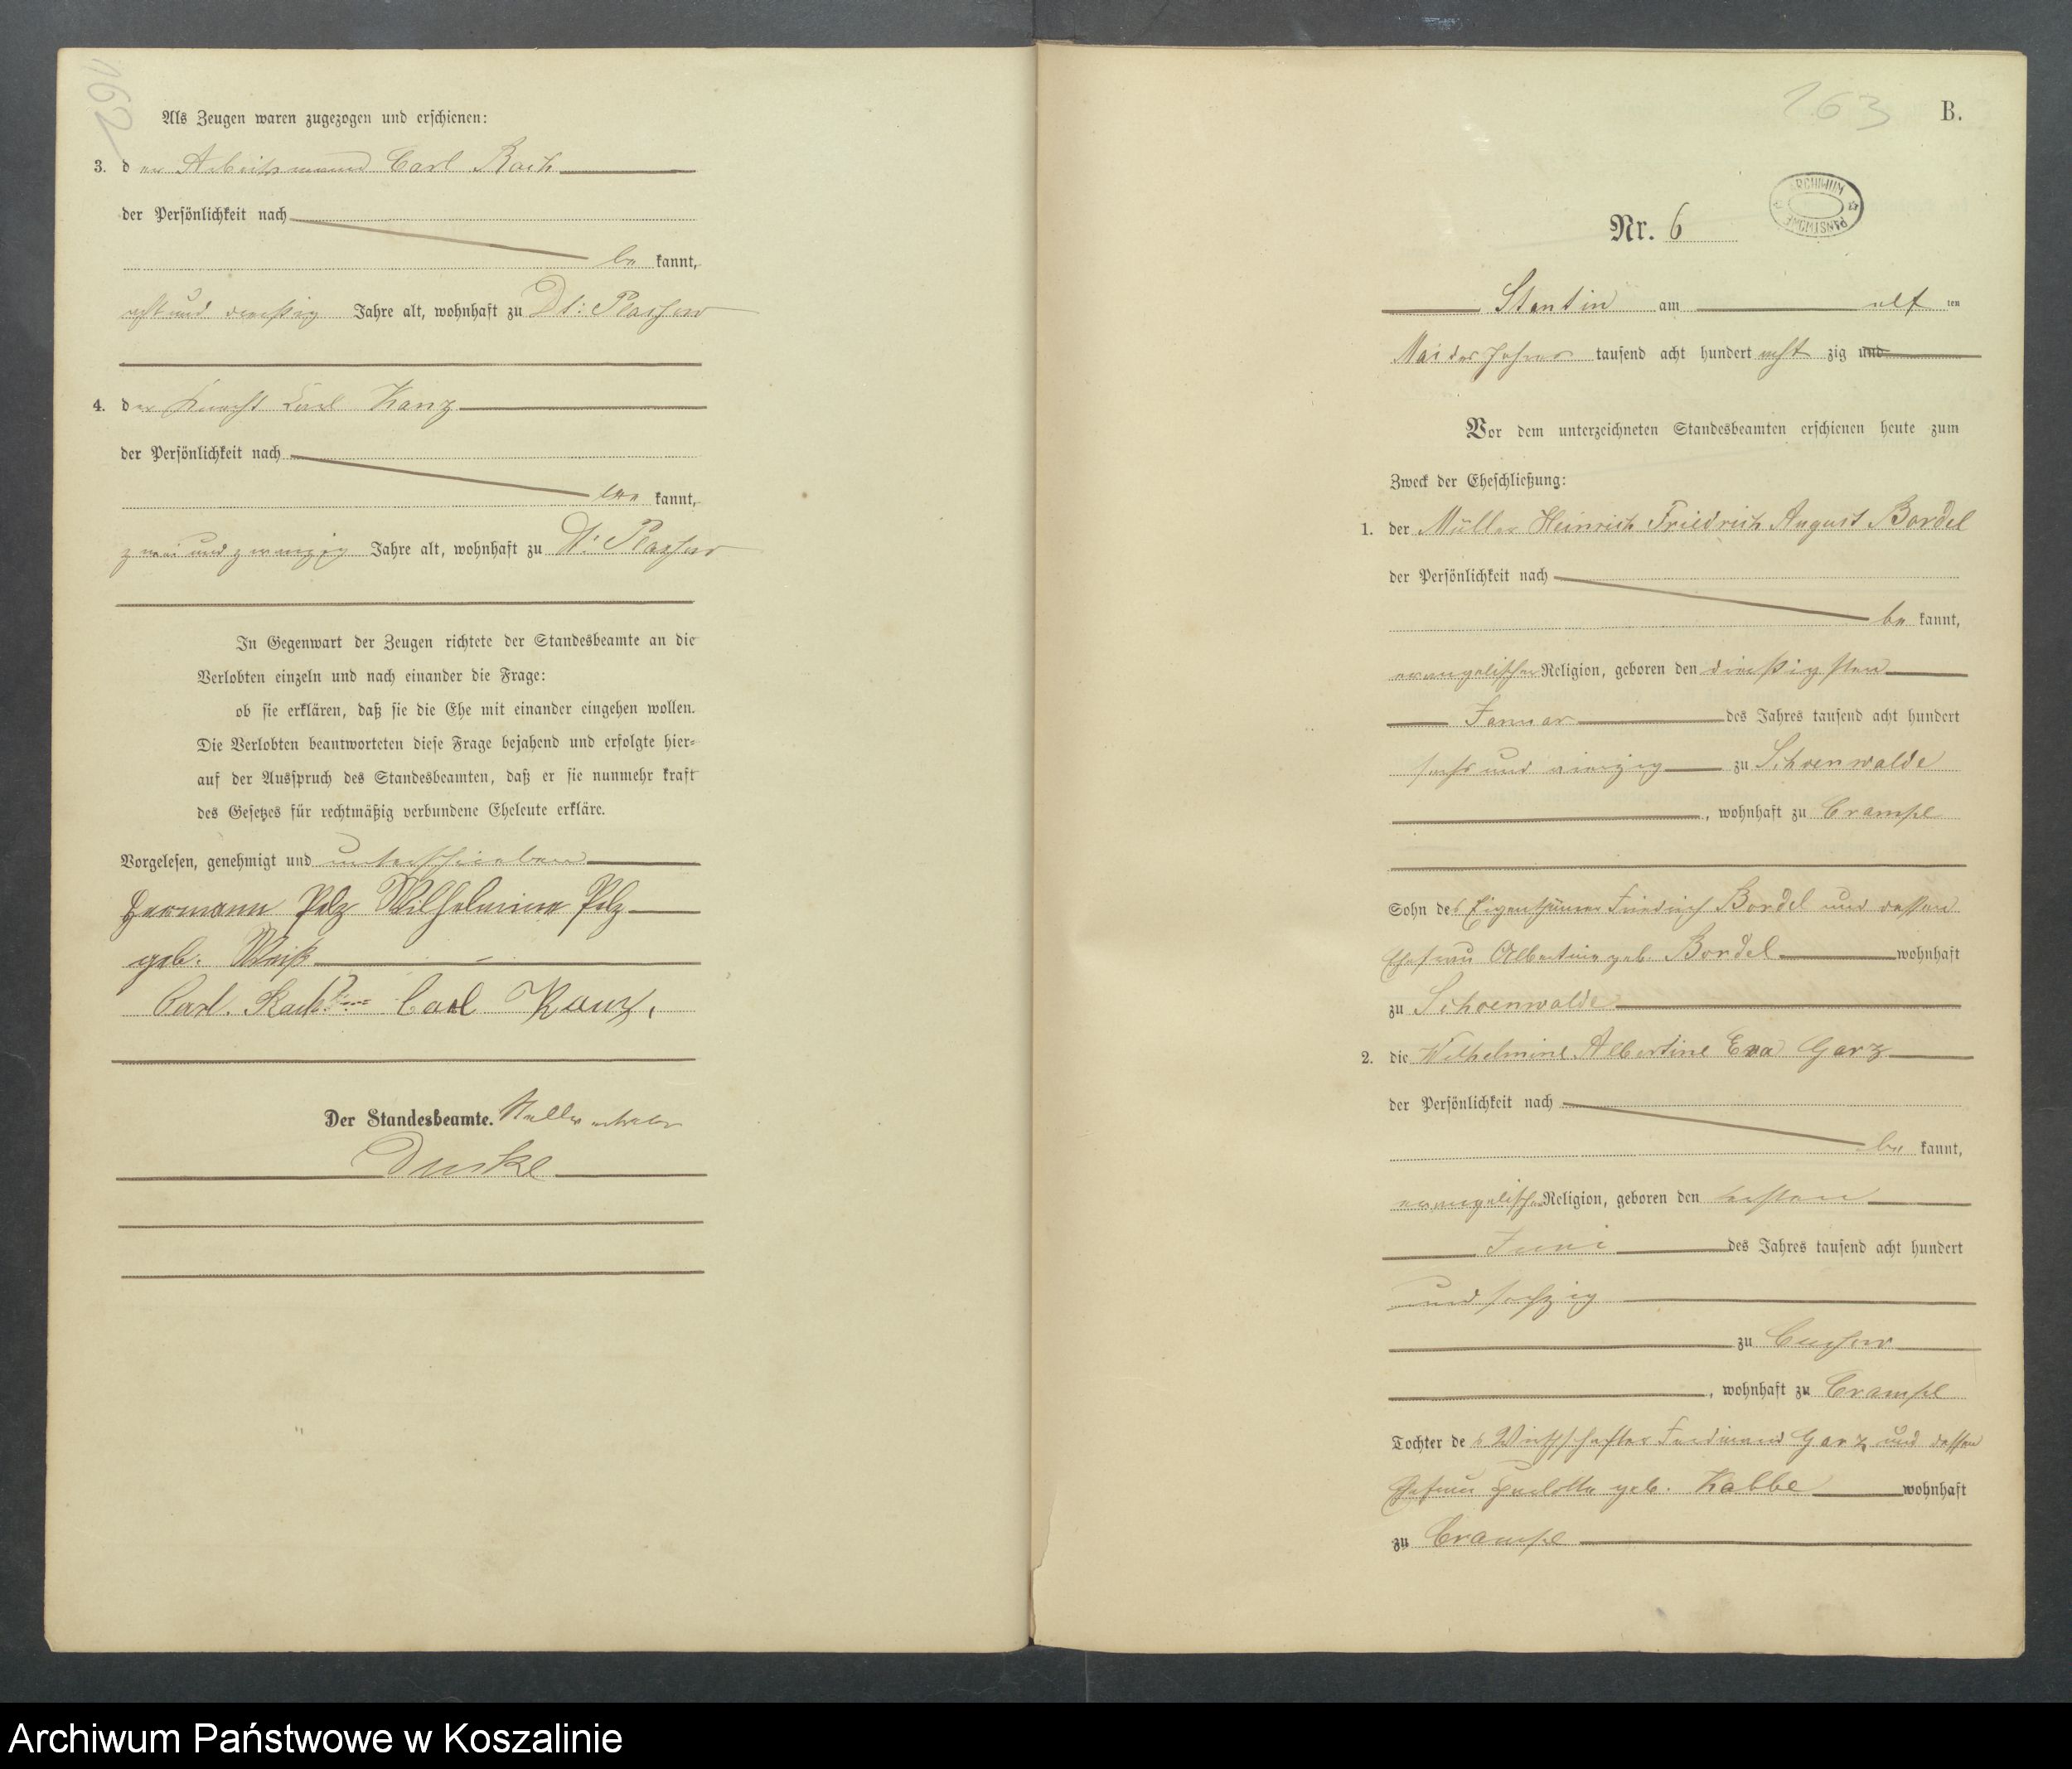 162
Als Zeugen waren zugezogen und erschienen:
3. der Arbeitsmann Carl Rach
der Persönlichkeit nach
be kannt,
acht und dreißig Jahre alt, wohnhaft zu Dt: Plassow
4. der Knecht Carl Kanz
der Persönlichkeit nach
be kannt,
zwei und zwanzig Jahre alt, wohnhaft zu Dt: Plassow
In Gegenwart der Zeugen richtete der Standesbeamte an die
Verlobten einzeln und nach einander die Frage:
ob sie erklären, daß sie die Ehe mit einander eingehen wollen.
Die Verlobten beantworteten diese Frage bejahend und erfolgte hier-
auf der Ausspruch des Standesbeamten, daß er sie nunmehr kraft
des Gesetzes für rechtmäßig verbundene Eheleute erkläre.
Vorgelesen, genehmigt und unterschrieben
Hermann Pelz Wilhelmine Pelz
geb. Weiß
Carl. Rach Carl Kanz,
Der Standesbeamte. Stellvertreter
Duske
163
B.
ARCHIWUM PAŃSTWOWE
Nr. 6
Stentin am elf ten
Mai des Jahres tausend acht hundert acht zig und
Vor dem unterzeichneten Standesbeamten erschienen heute zum
Zweck der Eheschließung:
1. der Müller Heinrich Friedrich August Bordel
der Persönlichkeit nach
be kannt,
evangelischer Religion, geboren den dreißigsten
Januar des Jahres tausend acht hundert
sechs und vierzig zu Schoenwalde
, wohnhaft zu Crampe
Sohn des Eigenthümer Friedrich Bordel und dessen
Ehefrau Albertine geb. Bordel wohnhaft
zu Schoenwalde
2. die Wilhelmine Albertine Eva Garz
der Persönlichkeit nach
be kannt,
evangelischer Religion, geboren den
Juni des Jahres tausend acht hundert
und sechzig
zu
, wohnhaft zu Crampe
Tochter des Wirthschafter Ferdinand Garz und dessen
Ehefrau geb. Kabbe wohnhaft
zu Crampe
Archiwum Państwowe w Koszalinie